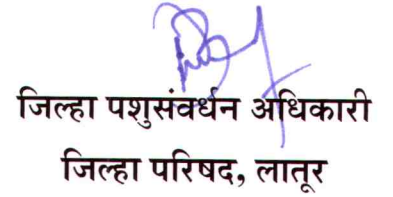 जिल्हा पशुसंवर्धन अधिकारी
जिल्हा परिषद, लातूर